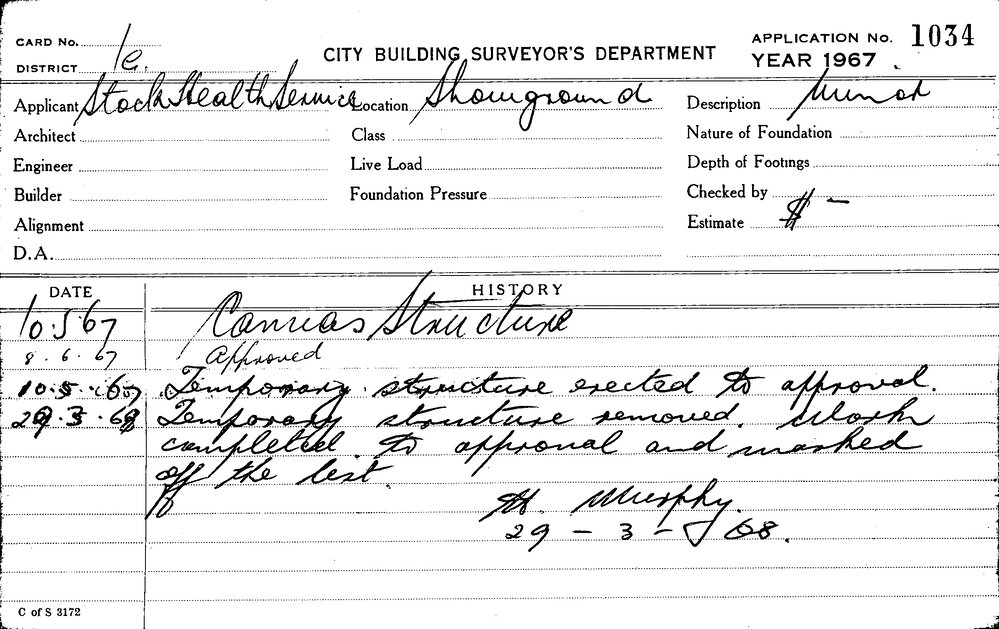 CARD No.
DISTRICT 1e.
CITY BUILDING SURVEYOR'S DEPARTMENT
APPLICATION No. 1034
YEAR 1967
Applicant Stock Health Service Location Showground Description Minor
Architect Class Nature of Foundation
Engineer Live Load Depth of Footings
Builder Foundation Pressure Checked by
Alignment Estimate $ —
D.A.
DATE HISTORY
10.5.67 Canvas Structure
8.6.67 Approved
10.5.67 Temporary structure erected to approval.
29.3.68 Temporary structure removed. Work
completed to approval and marked
off the list.
Murphy.
29 - 3 - 68.
C of S 3172